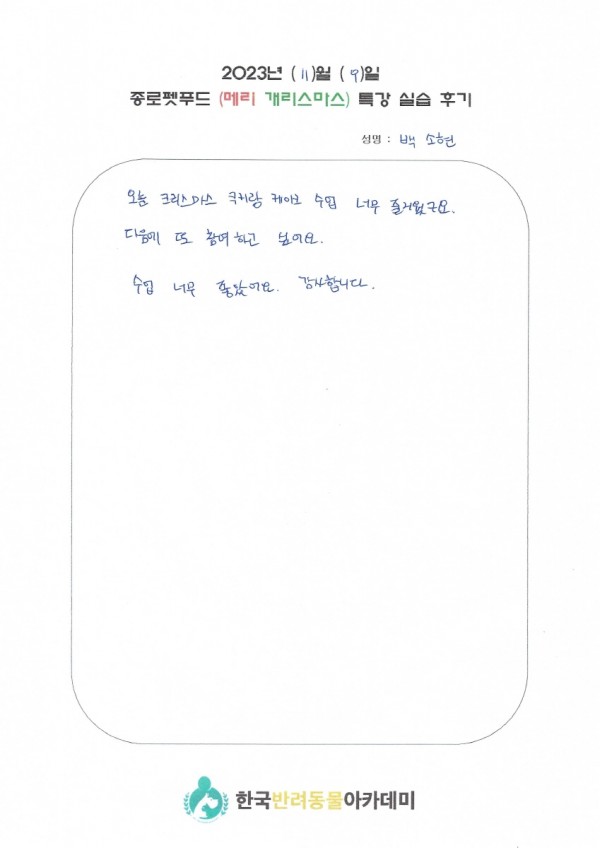 2023년 (11)월 (9)일
종로펫푸드 (메리 개리스마스) 특강 실습 후기
성명 : 백 소현
오늘 크리스마스 쿠키랑 케이크 수업 너무 즐거웠구요.
다음에 또 참여하고 싶어요.
수업 너무 좋았어요. 감사합니다.
한국반려동물아카데미